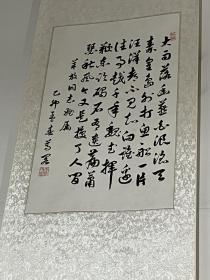 大雨落幽燕白浪滔天
秦皇岛外打鱼船一片
汪洋都不见知向谁边
往事越千年魏武挥
鞭东临碣石有遗篇萧
瑟秋风今又是换了人间
同志